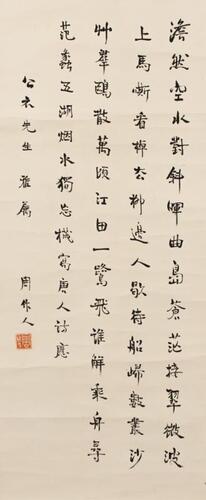 澹然空水對斜暉曲島蒼茫接翠微波
上馬嘶看棹去柳邊人歇待船歸數叢沙
艸羣鷗散萬頃江田一鷺飛誰解乘舟尋
范蠡五湖烟水獨忘機寫唐人詩應
公禾先生雅屬
周作人